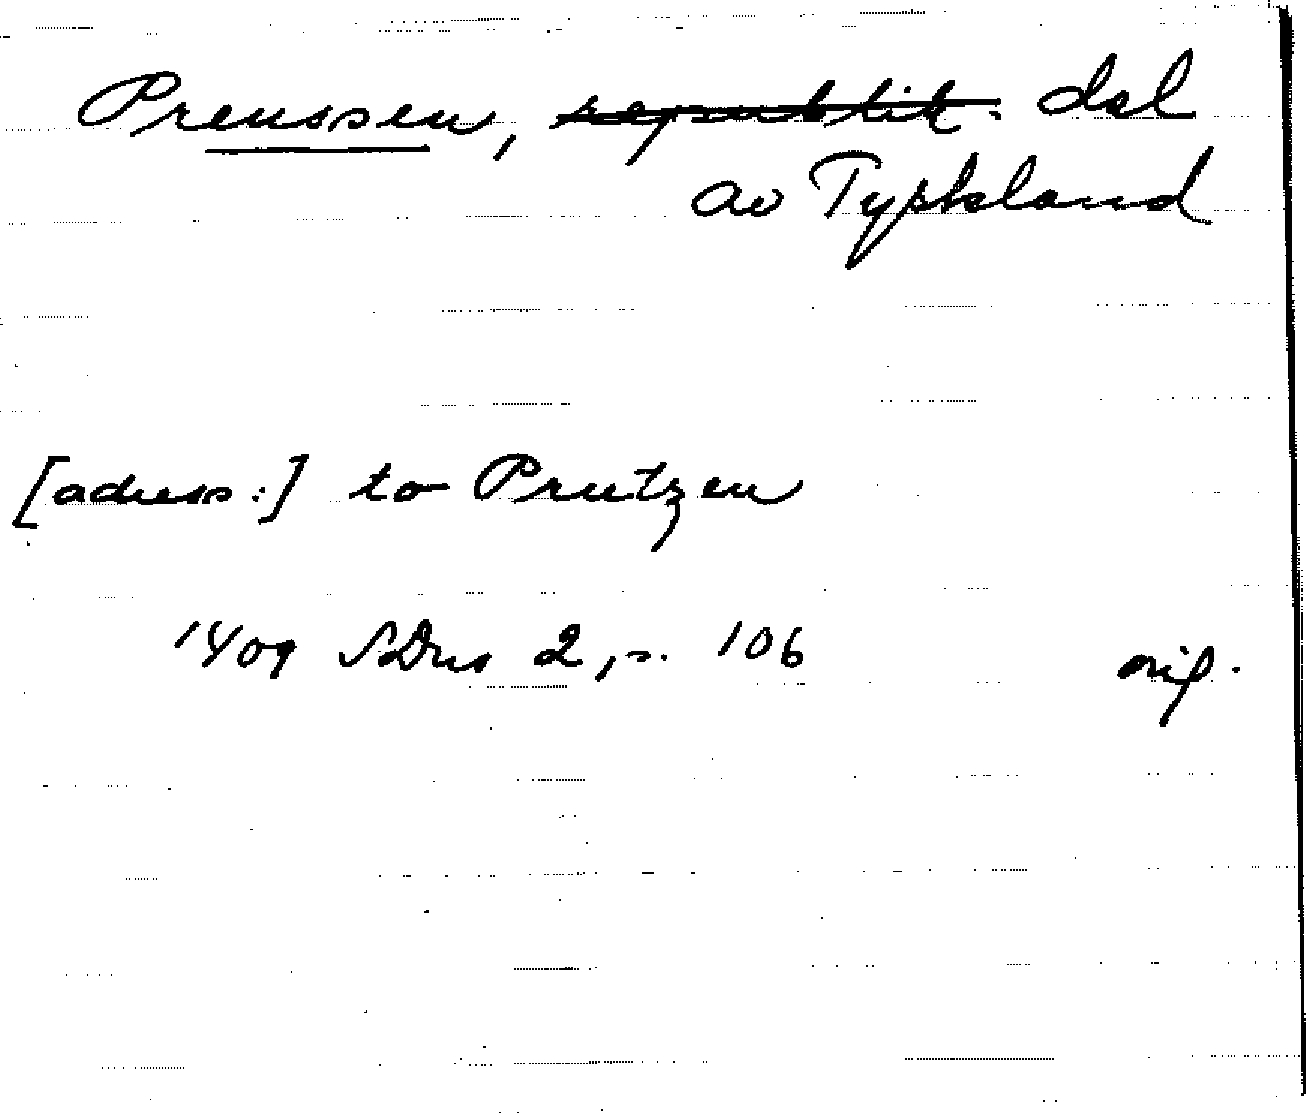 Preussen, republik. del
av Tyskland
[adress:] to Prutzen
1409 SDns 2, s. 106 orig.